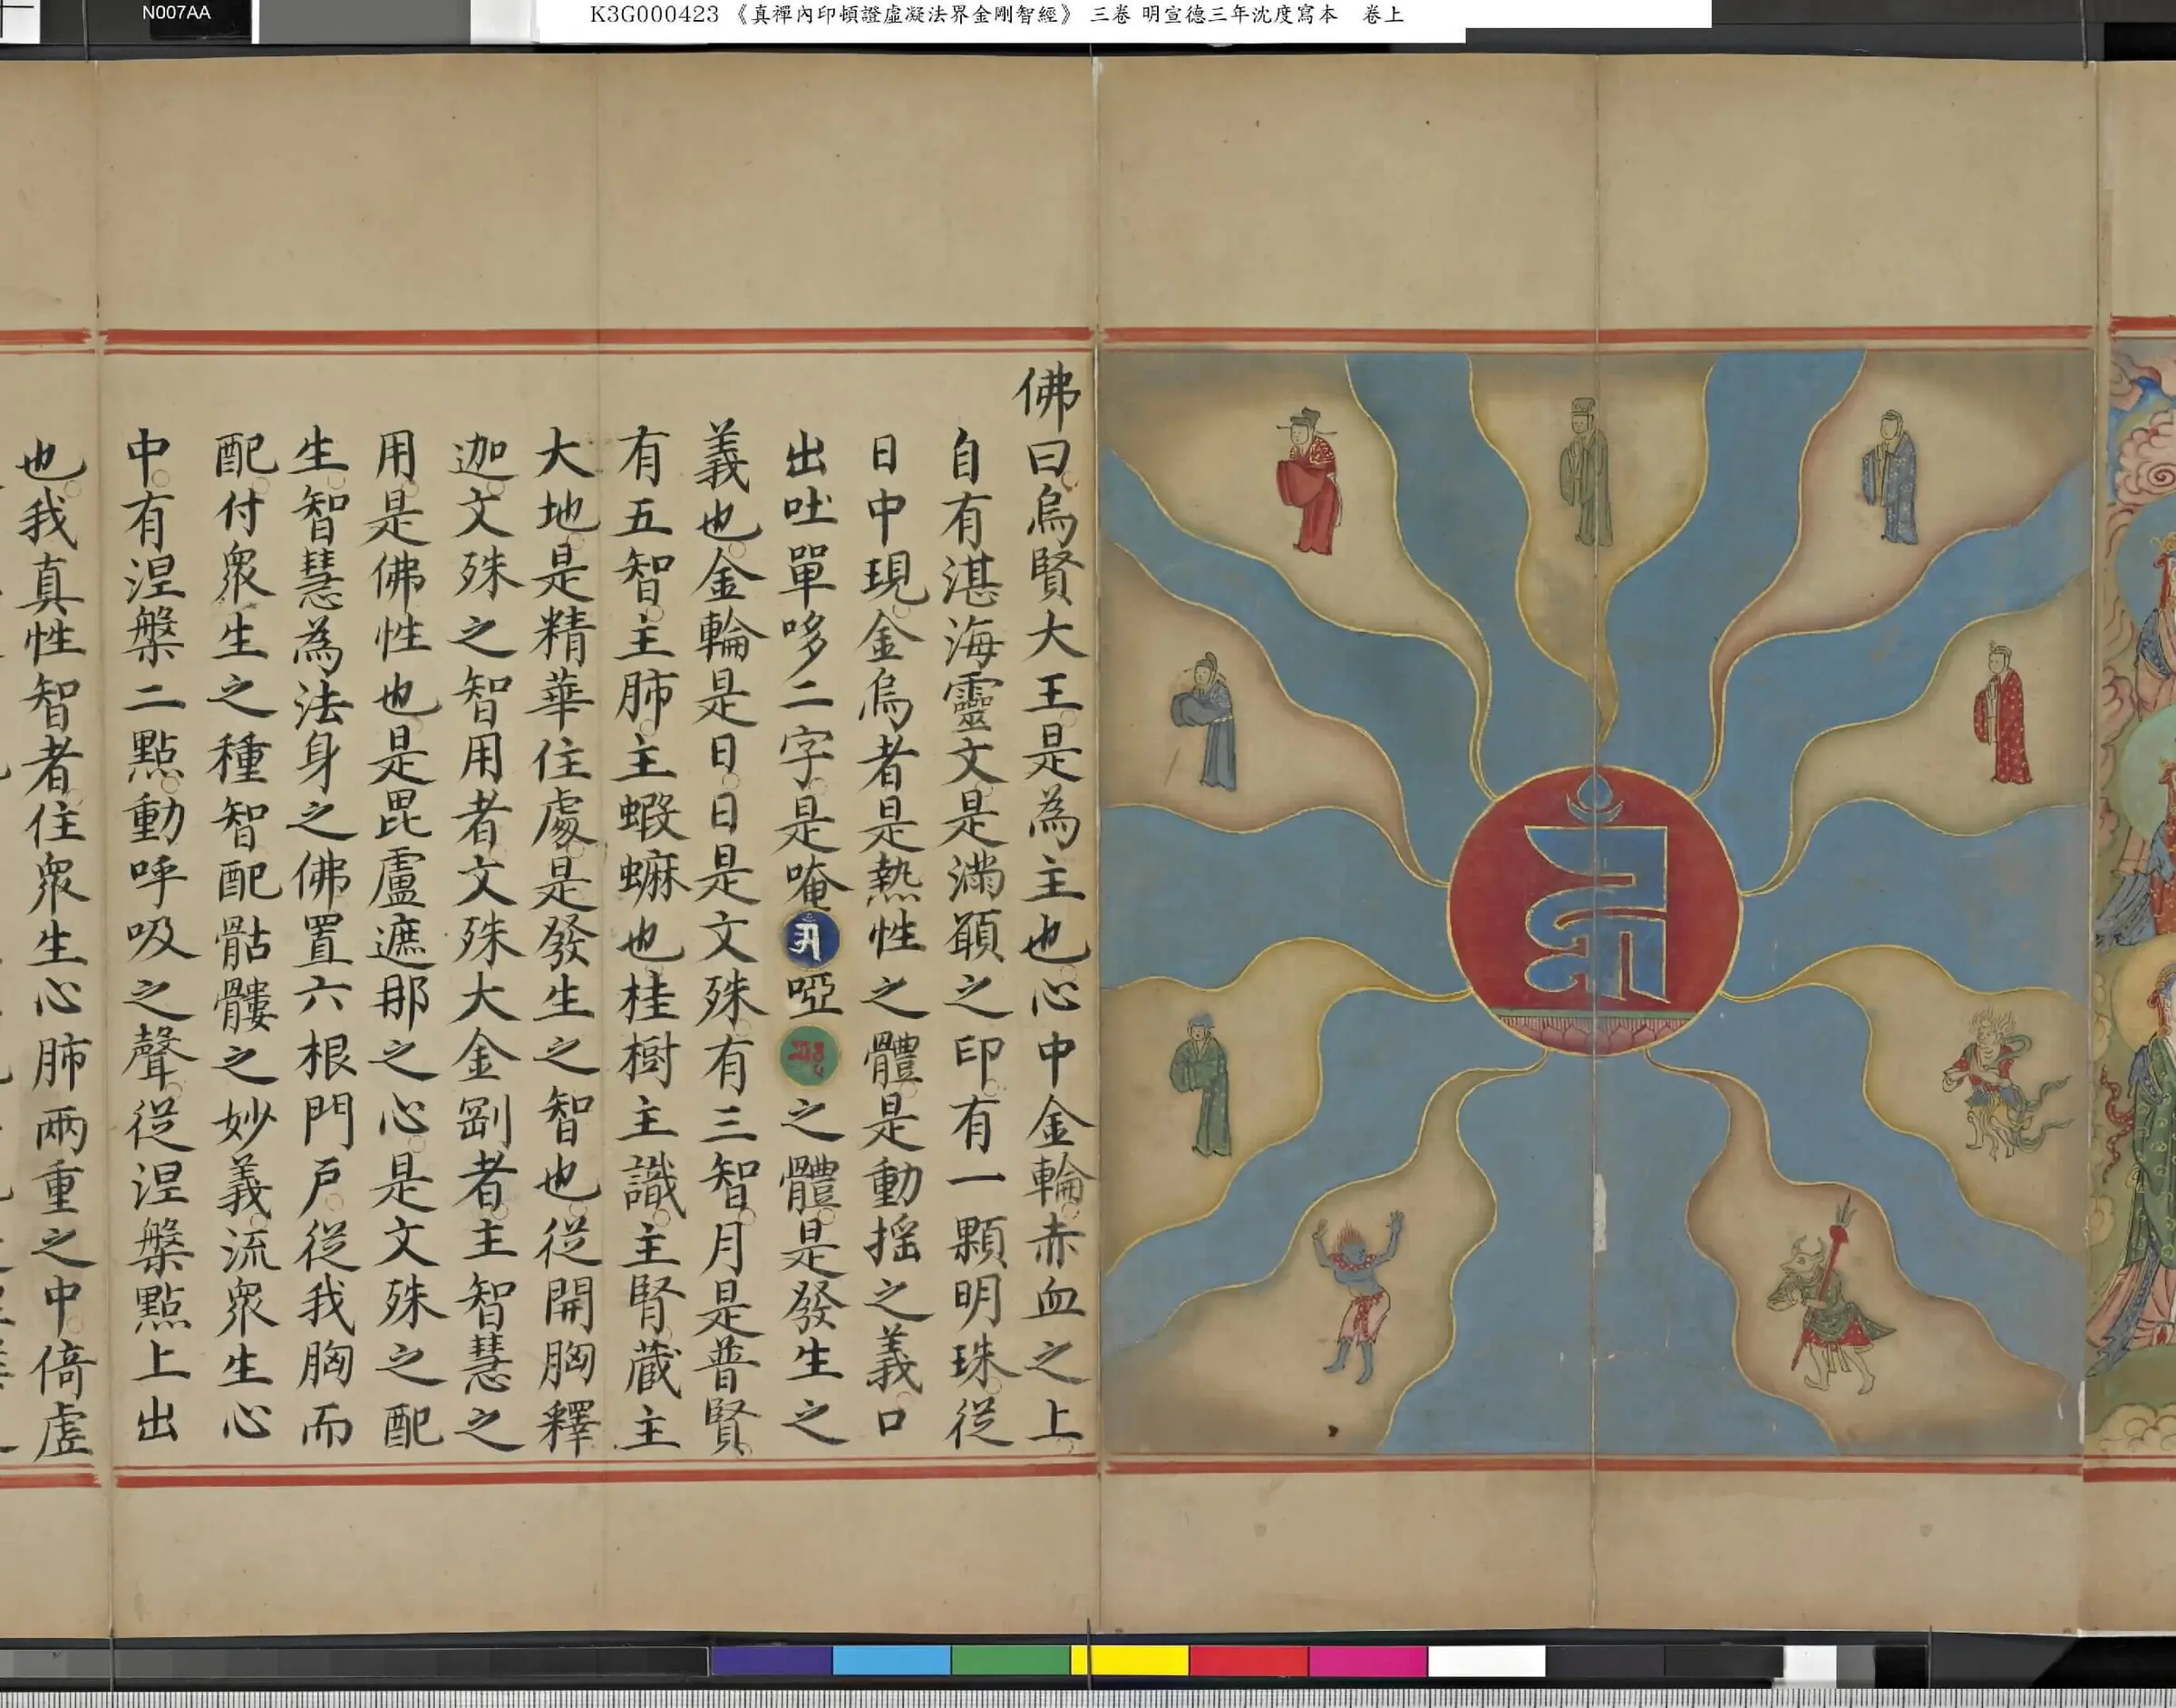 N007AA
K3G000423 《真禪內印頓證虛凝法界金剛智經》 三卷 明宣德三年沈度寫本　卷上
佛曰烏賢大王是為主也心中金輪赤血之上
自有湛海靈文是滿顖之印有一顆明珠從
日中現金烏者是熱性之體是動搖之義口
出吐單哆二字是唵啞之體是發生之
義也金輪是日日是文殊有三智月是普賢
有五智主肺主蝦蟆也桂樹主識主腎蔵主
大地是精華住處是發生之智也從開胸釋
迦文殊之智用者文殊大金剛者主智慧之
用是佛性也是毘盧遮那之心是文殊之配
生智慧為法身之佛置六根門戶從我胸而
配付衆生之種智配骷髏之妙義流衆生心
中有涅槃二點動呼吸之聲從涅槃點上出
也我真性智者住衆生心肺兩重之中倚虛